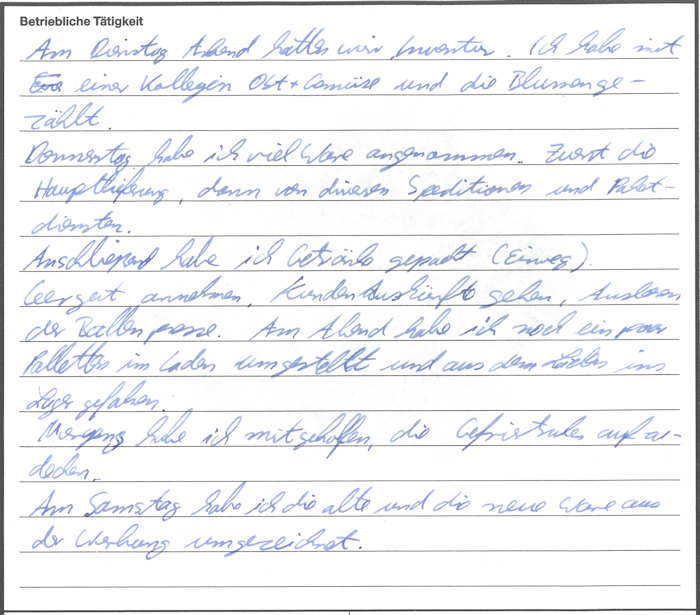 Betriebliche Tätigkeit
Am Dienstag Abend hatten wir Inventur. Ich habe mit
einer Kollegin Obst + Gemüse und die Blumen ge-
zählt.
Donnerstag habe ich viel Ware angenommen. Zuerst die
Hauptlieferung, dann von diversen Speditionen und Paket-
diensten.
Anschließend habe ich Getränke gepackt (Einweg).
Leergut annehmen, Kunden Auskünfte geben, Ausleeren
der Ballenpresse. Am Abend habe ich noch ein paar
Palletten im Laden umgestellt und aus dem Laden ins
Lager gefahren.
habe ich mitgeholfen, die Gefriertruhen auf
decken.
Am Samstag habe ich die alte und die neue Ware aus
der Werbung umgezeichnet.